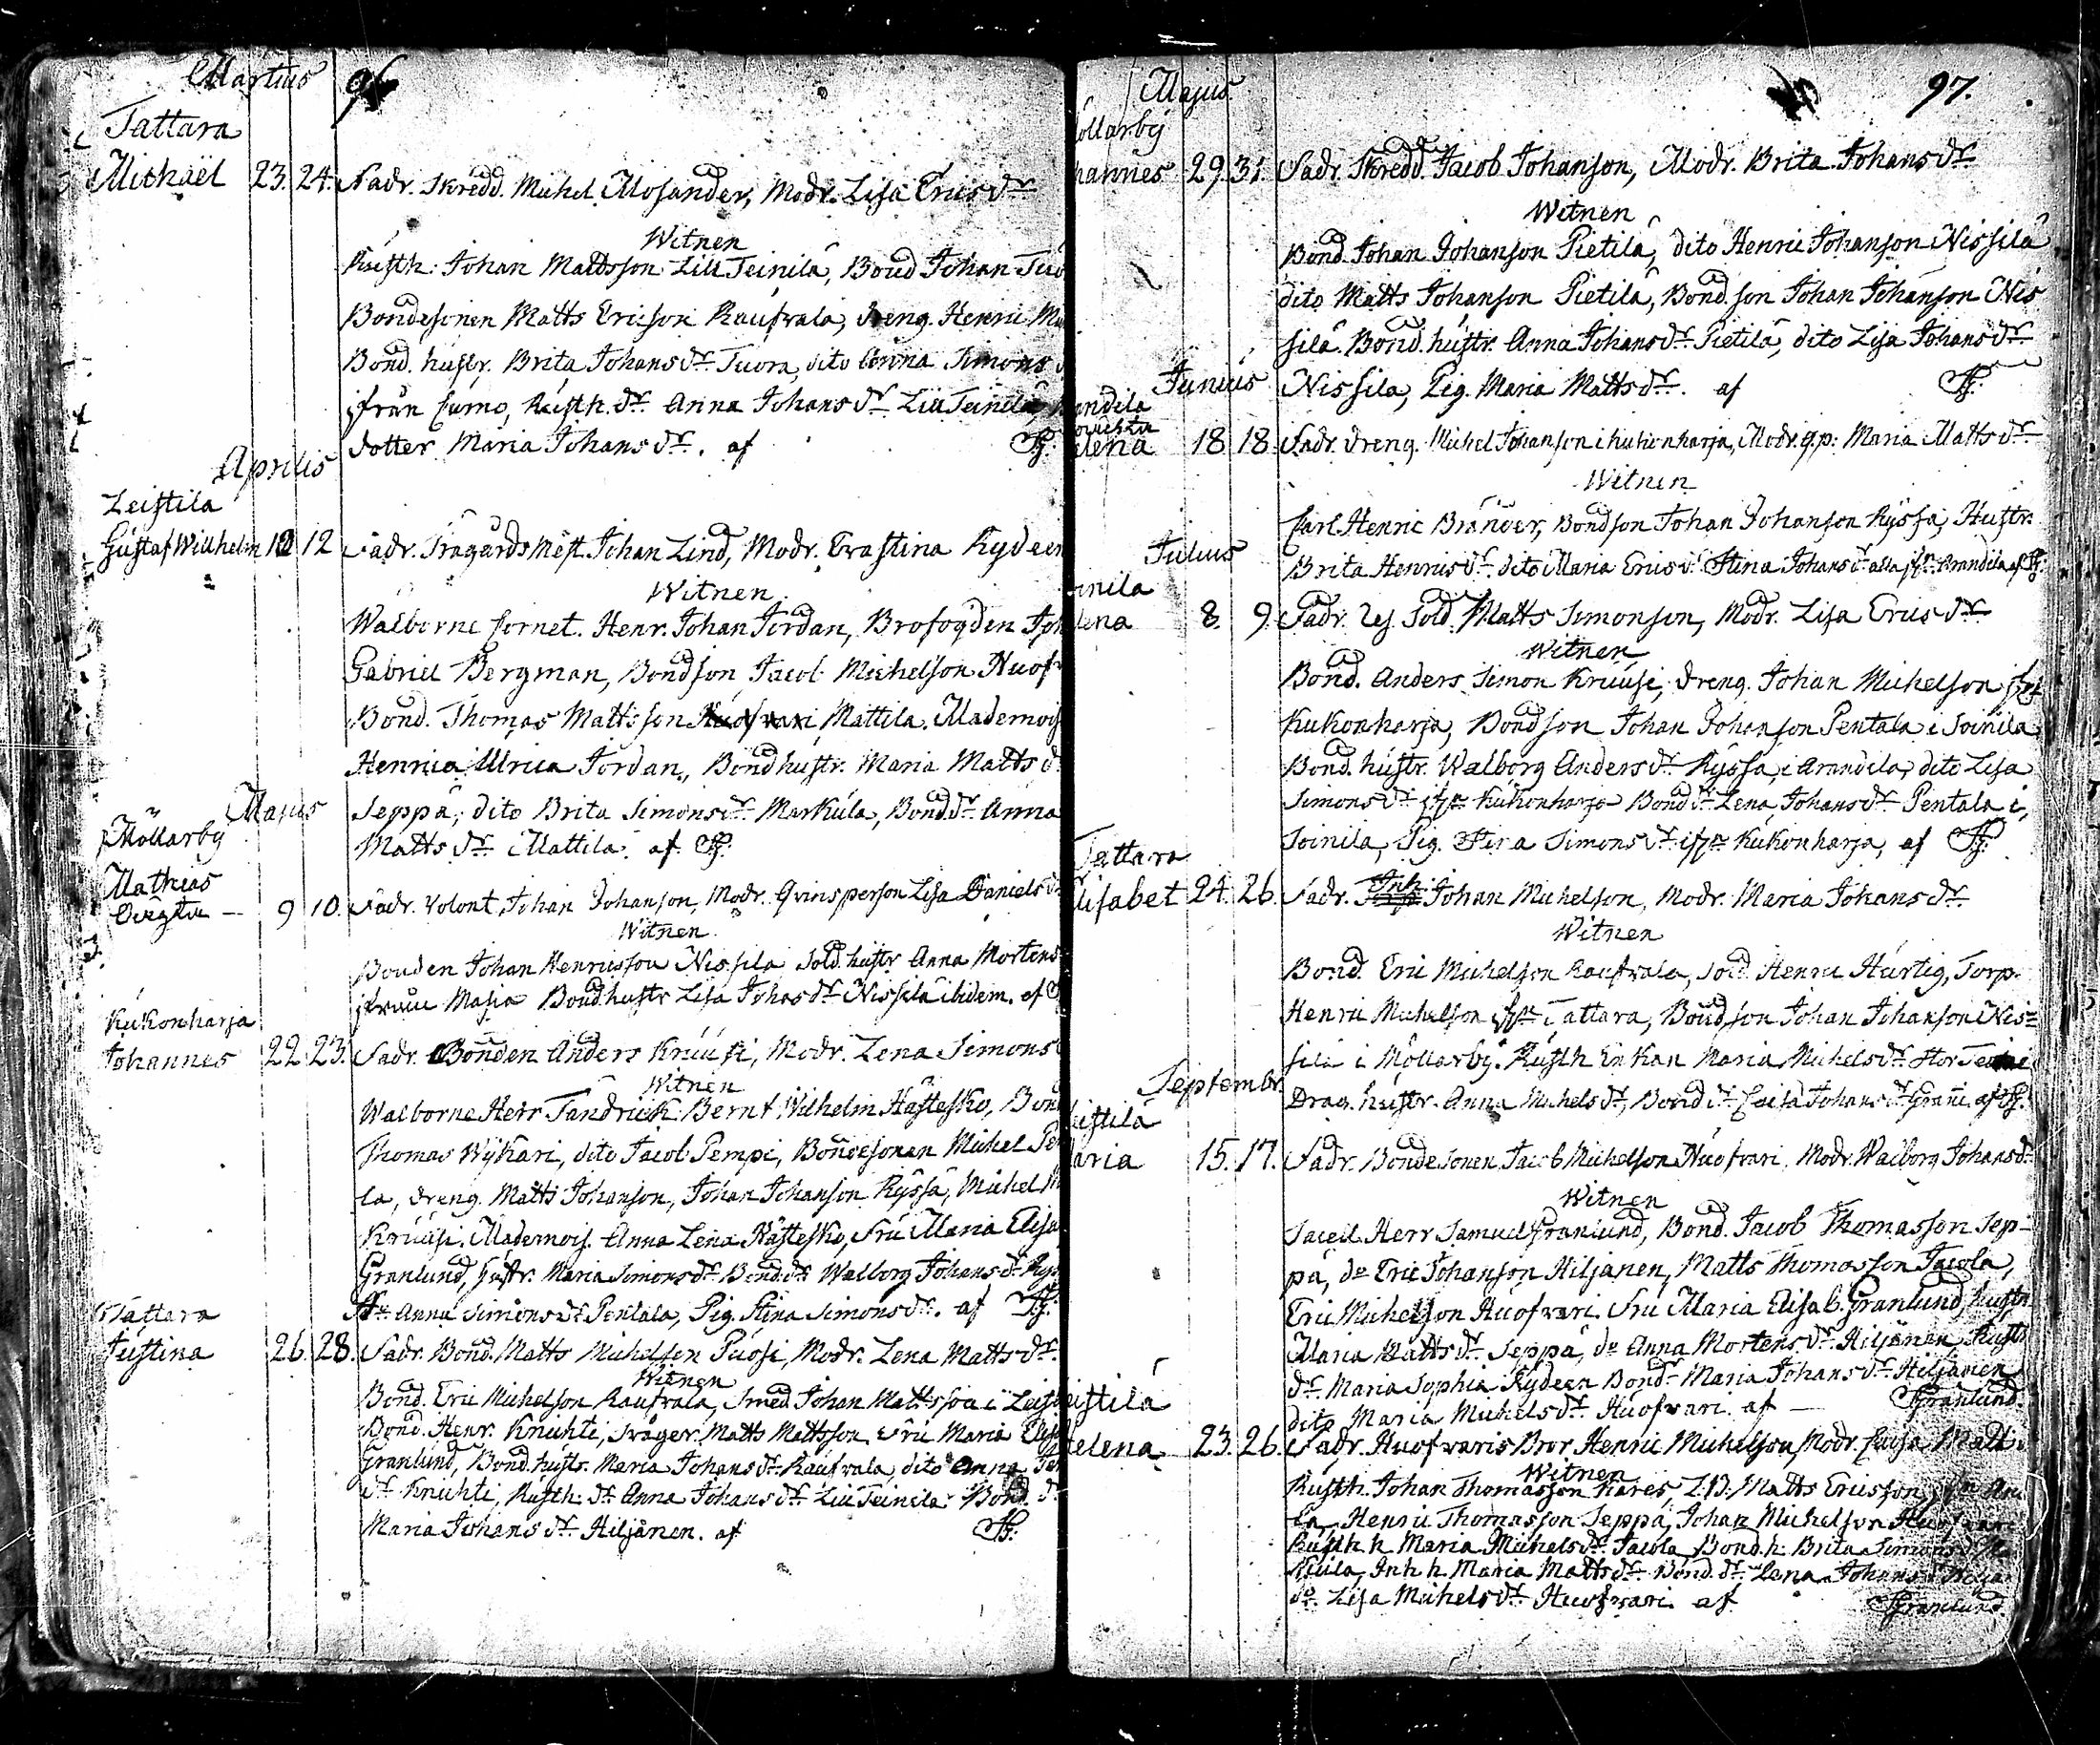 Martius 96
Tattara
Michaël 23. 24. Fadr. Skredd. Michel Mosander, Modr. Lisa Ericsdr
Witnen
Rusth: Johan Mattsson Lill Teinilä, Bond Johan
Bondesonen Matts Ericson Raufvala, Dreng. Henric
Bond. hustr. Brita Johansdr Tuora, dito Anna Simons
ifrån Cumo, Rusth. dr Anna Johansdr Lill Teinilä,
dotter Maria Johansdr. af
Aprilis
Leistila
Gustaf Wilhelm 12 Fadr. Trägårds Mest. Johan Lind, Modr. Cristina Rydeen
Witnen
Walborne Cornet. Henr. Johan Jordan, Brofogden
Gabriel Bergman, Bondson Jacob Michelson
Bond. Thomas Mattsson Mattila. Mademois
Henrica Ulrica Jordan, Bondhustr. Maria Matts
Majus
Seppä, dito Brita Simonsdr Markula, Bond.dr Anna
Möllarby
Mattsdr Mattila. af
Mathias
Oägta 9 10. Fadr. Volont. Johan Johanson, Modr. Qvinsperson Lisa Daniels
Witnen
Bonden Johan Henricsson Nissila Sold. hustr Anna Mortens
ifrån Masia Bondhustr Lisa Johansdr Nissilä ibidem. af
Kukonharja
Johannes 22 23. Fadr. Bonden Anders Kruusi, Modr. Lena Simons
Witnen
Walborne Herr Fändrick Bernt Wilhelm Hästesko,
Thomas Wykari, dito Jacob Pempi, Bondesonen Michel
la, Dreng. Matts Johanson, Johan Johanson Ryssä, Michel
Kruusi. Mademois. Anna Lena Hästesko, Fru Maria
Granlund, hustr. Maria Simonsdr Bond.dr Walborg Johansdr
Anna Simonsdr Pentala, Pig. Stina Simonsdr. af
Tattara
Justina 26. 28. Fadr. Bond. Matts Michelson Puosi, Modr. Lena Mattsdr.
Witnen
Bond. Eric Michelson Raufvala, Smed. Johan Mattsson i
Bond. Henr. Knichti, Matts Mattson. Fru Maria
Granlund, Bond. hustr. Maria Johansdr Raufvala, dito Anna
dr Knichti, Rusth. dr Anna Johansdr Lill Teinila Bond. dr
Maria Johansdr Hiljänen. af
Majus 97.
ollarby
hannes 29. 31. Fadr. Skredd. Jacob Johanson, Modr. Brita Johansdr
Witnen
Bond. Johan Johanson Pietilä, dito Henric Johanson Nissilä
dito Matts Johanson Pietilä, Bond. son Johan Johanson Nis
silä. Bond. hustr. Anna Johansdr Pietilä, dito Lisa Johansdr
Junius
Nissila, Pig. Maria Mattsdr. af
andila
elena 18 18. Fadr. Dreng. Michel Johanson i Kukonharja, Modr. q.p. Maria Mattsdr
Witnen
Carl Henric Brander, Bondson Johan Johanson Ryssä, Hustr.
Julius
Brita Henricsdr. dito Maria Ericsdr Stina Johansdr alla
inila
lena 8. 9. Fadr. Sold. Matts Simonson, Modr. Lisa Ericsdr
Witnen
Bond. Anders Simon Kruusi, Dreng. Johan Michelson
Kukonharja, Bondson Johan Johanson Pentala i Soinila
Bond. hustr. Walborg Andersdr Ryssä, i Arandila, dito Lisa
Simonsdr Kukonharja Bonddr Lena Johansdr Pentala i
Soinila, Pig. Stina Simonsdr Kukonharja, af
Tattara
lisabet 24. 26. Fadr. Inh. Johan Michelson, Modr. Maria Johansdr
Witnen
Bond. Eric Michelson Raufvala, Sold. Henric Hurtig, Torp.
Henric Michelson Tattara, Bondson Johan Johanson Nis-
silä i Möllarby. Rusth Enkan Maria Michelsdr Stor
Septembr.
Drag. hustr. Anna Michelsdr, Bonddr Caisa Johansdr
eistila
aria 15. 17. Fadr. Bondesonen Jacob Michelson Huofvari. Modr. Walborg Johansdr
Witnen
Herr Samuel Granlund, Bond. Jacob Thomasson Sep-
pä, do Eric Johanson Hiljanen, Matts Thomasson Jacola,
Eric Michelson Huofvari. Fru Maria Elisab. Granlund, hustr.
Maria Mattsdr Seppä, do Anna Mortensdr Hiljänen, Rusth
dr Maria Sophia Rydeen Bonddr Maria Johansdr Hiljänen
dito Maria Michelsdr Huofvari. af — Granlund.
eistilä
elena 23. 26. Fadr. Huofvaris Bror Henric Michelson, Modr. Caisa Matts
Witnen
Rusth. Johan Thomasson Kares, Matts Ericsson,
la, Henric Thomasson Seppä, Johan Michelson Huofvari
Rusth. h. Maria Michelsdr Jacola, Bond. h. Brita Simonsdr
kula, Inh. h. Maria Mattsdr. Bond.dr Lena Johans
do Lisa Michelsdr Huofvari. af Granlund